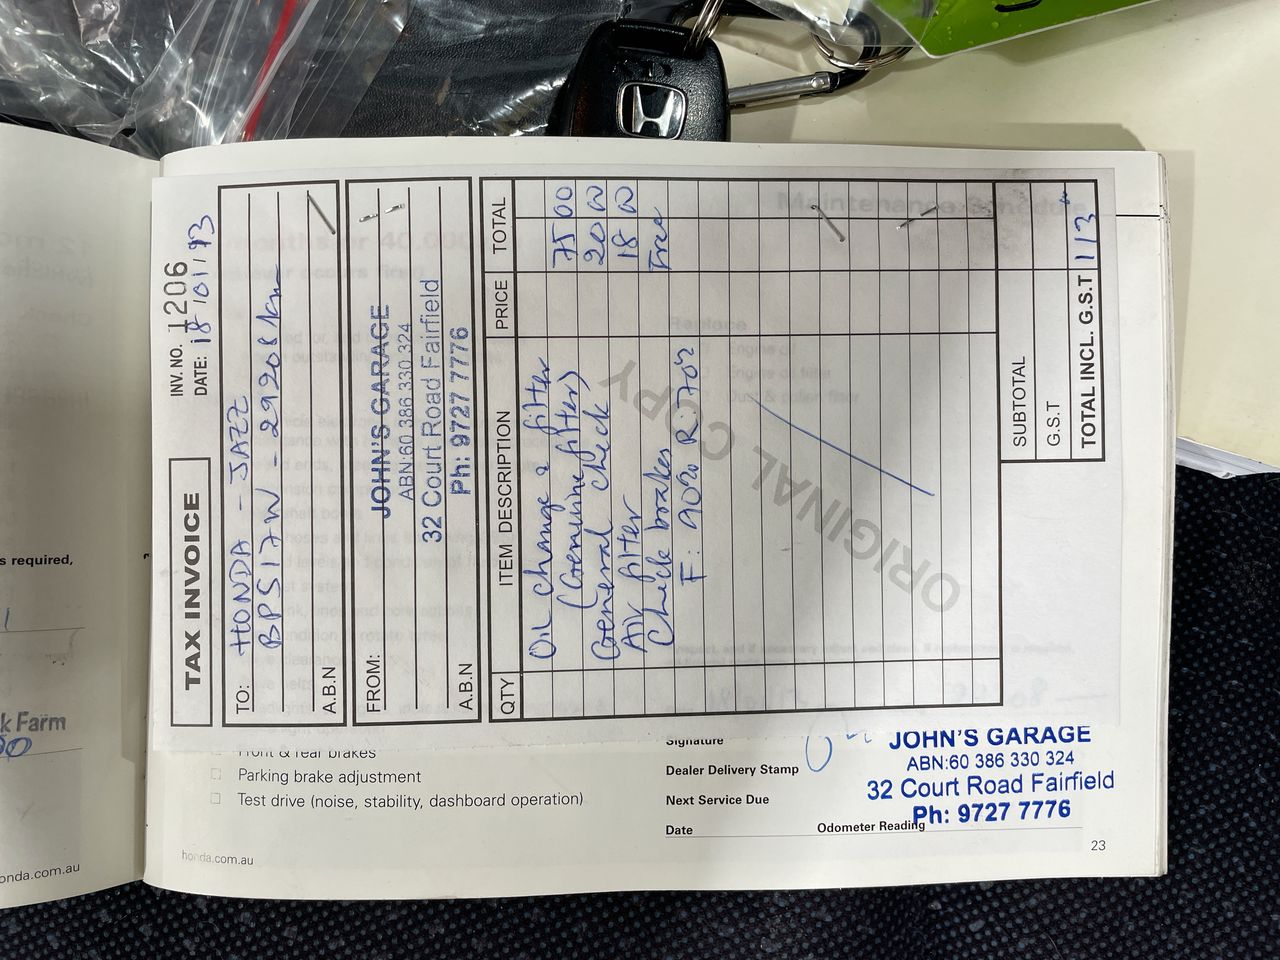 TAX INVOICE
INV. NO. 1206
DATE: 18/01/13
TO: HONDA - JAZZ
BPS17W - 29208 km
A.B.N
FROM:
JOHN'S GARAGE
ABN:60 386 330 324
32 Court Road Fairfield
Ph: 9727 7776
A.B.N
QTY ITEM DESCRIPTION PRICE TOTAL
Oil change & filter 75 00
(Genuine filter)
General check 20 00
Air filter 18 00
Check brakes Free
F: 90% R 70%
ORIGINAL COPY
SUBTOTAL
G.S.T
TOTAL INCL. G.S.T 113
Maintenance Schedule
Replace
Engine oil
Engine oil filter
Dust & pollen filter
Front & rear brakes
Parking brake adjustment
Test drive (noise, stability, dashboard operation)
Signature
Dealer Delivery Stamp
Next Service Due
Date Odometer Reading
JOHN'S GARAGE
ABN:60 386 330 324
32 Court Road Fairfield
Ph: 9727 7776
honda.com.au
23
s required,
k Farm
onda.com.au